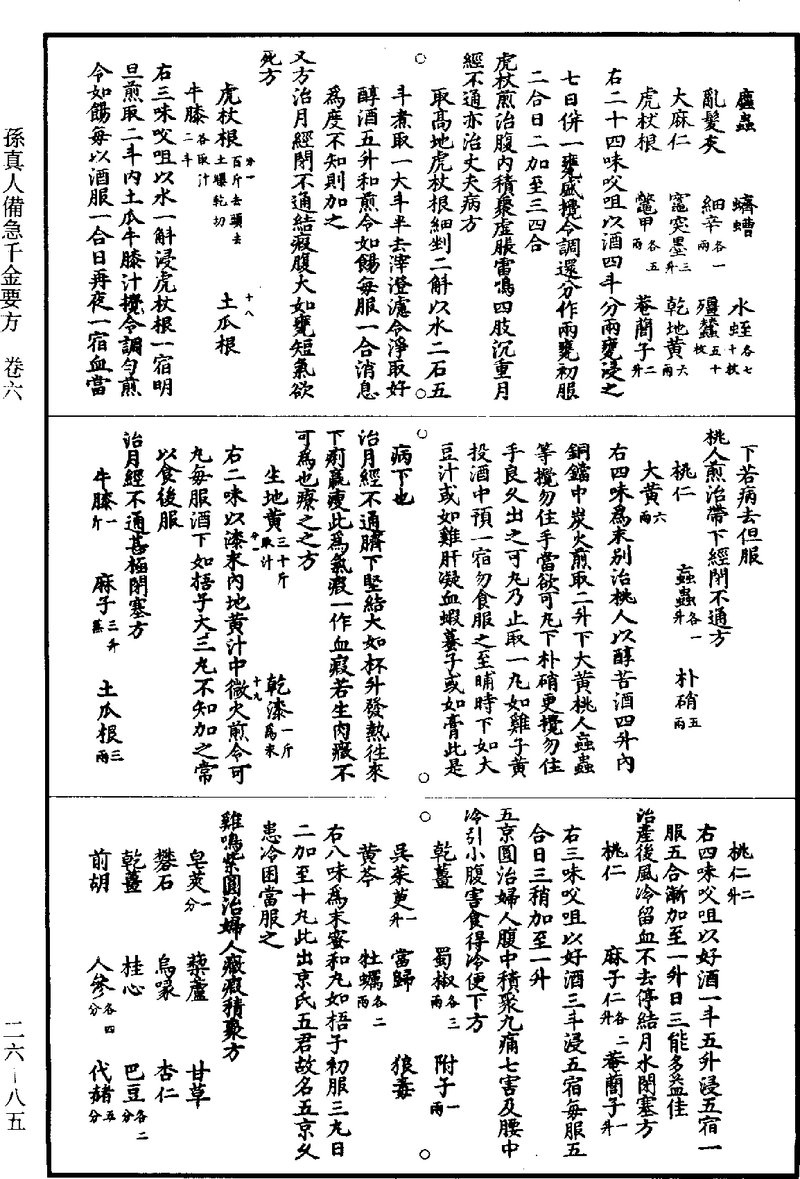 孫真人備急千金要方　卷六
二六—八五
䗪蟲　蠐螬　水蛭各七十枚
亂髮灰　細辛各一兩　殭蠶五十枚
大麻仁　竈突墨三升　乾地黃六兩
虎杖根　鼈甲各五兩　菴䕡子二升
右二十四味㕮咀以酒四斗分兩甕浸之
七日併一甕盛攪令調還分作兩甕初服
二合日二加至三四合
虎杖煎治腹內積聚虛脹雷鳴四肢沉重月
經不通亦治丈夫病方
取高地虎杖根細剉二斛以水二石五
斗煮取一大斗半去滓澄濾令淨取好
醇酒五升和煎令如餳每服一合消息
為度不知則加之
又方治月經閉不通結瘕腹大如甕短氣欲
死方
虎杖根百斤去頭去土㬥乾切　土瓜根
牛膝各取汁二斗
右三味㕮咀以水一斛浸虎杖根一宿明
旦煎取二斗內土瓜牛膝汁攪令調勻煎
令如餳每以酒服一合日再夜一宿血當
下若病去但服
桃人煎治帶下經閉不通方
桃仁　䖟蟲各一升　朴硝五兩
大黃六兩
右四味為末別治桃人以醇苦酒四升內
銅鐺中炭火煎取二升下大黃桃人䖟蟲
等攪勿住手當欲可丸下朴硝更攪勿住
手良久出之可丸乃止取一丸如雞子黃
投酒中預一宿勿食服之至晡時下如大
豆汁或如雞肝凝血蝦蟇子或如膏此是
病下也
治月經不通臍下堅結大如杯升發熱往來
下痢羸瘦此為氣瘕一作血瘕若生肉癥不
可為也療之之方
生地黃三十斤取汁　乾漆一斤為末
右二味以漆末內地黃汁中微火煎令可
丸每服酒下如梧子大三丸不知加之常
以食後服
治月經不通甚極閉塞方
牛膝一斤　麻子三升蒸　土瓜根三兩
桃仁二升
右四味㕮咀以好酒一斗五升浸五宿一
服五合漸加至一升日三能多益佳
治產後風冷留血不去停結月水閉塞方
桃仁　麻子仁各二升　菴䕡子一升
右三味㕮咀以好酒三斗浸五宿每服五
合日三稍加至一升
五京圓治婦人腹中積聚九痛七害及腰中
冷引小腹害食得冷便下方
乾薑　蜀椒各三兩　附子一兩
吳茱萸一升　當歸　狼毒
黃芩　牡蠣各二兩
右八味為末蜜和丸如梧子初服三丸日
二加至十丸此出京氏五君故名五京久
患冷困當服之
雞鳴紫圓治婦人癥瘕積聚方
皂莢一分　藜蘆　甘草
礬石　烏喙　杏仁
乾薑　桂心　巴豆各二分
前胡　人參各四分　代赭五分